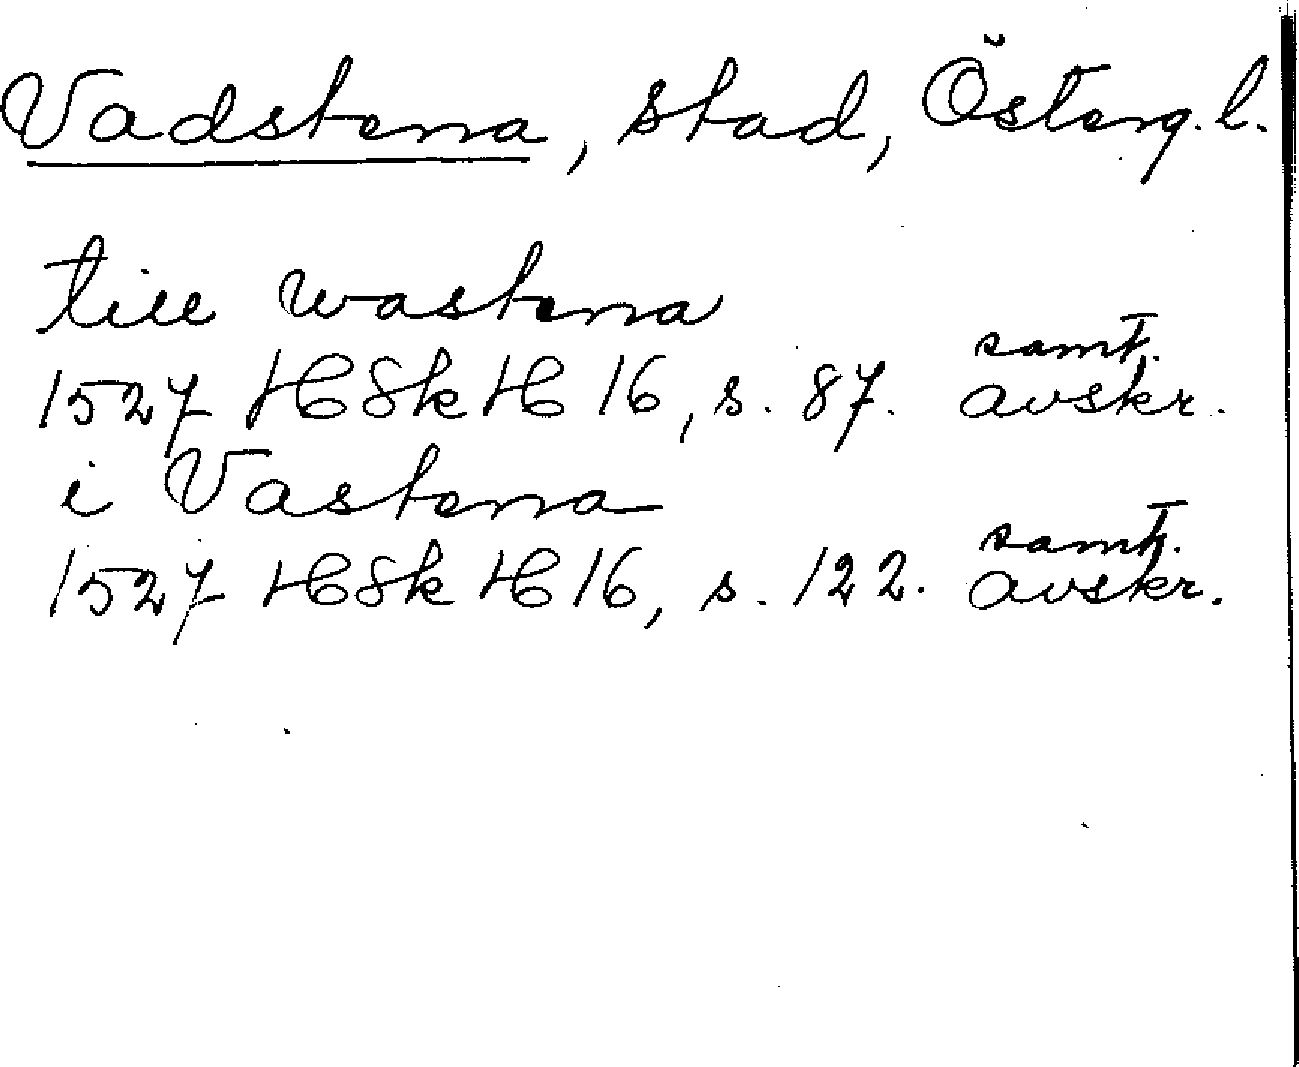 Vadstena, stad, Österg. l.
till wastena
1527 HSkH 16, s. 87. samt. avskr.
i Vastena
1527 HSkH 16, s. 122. samt. avskr.